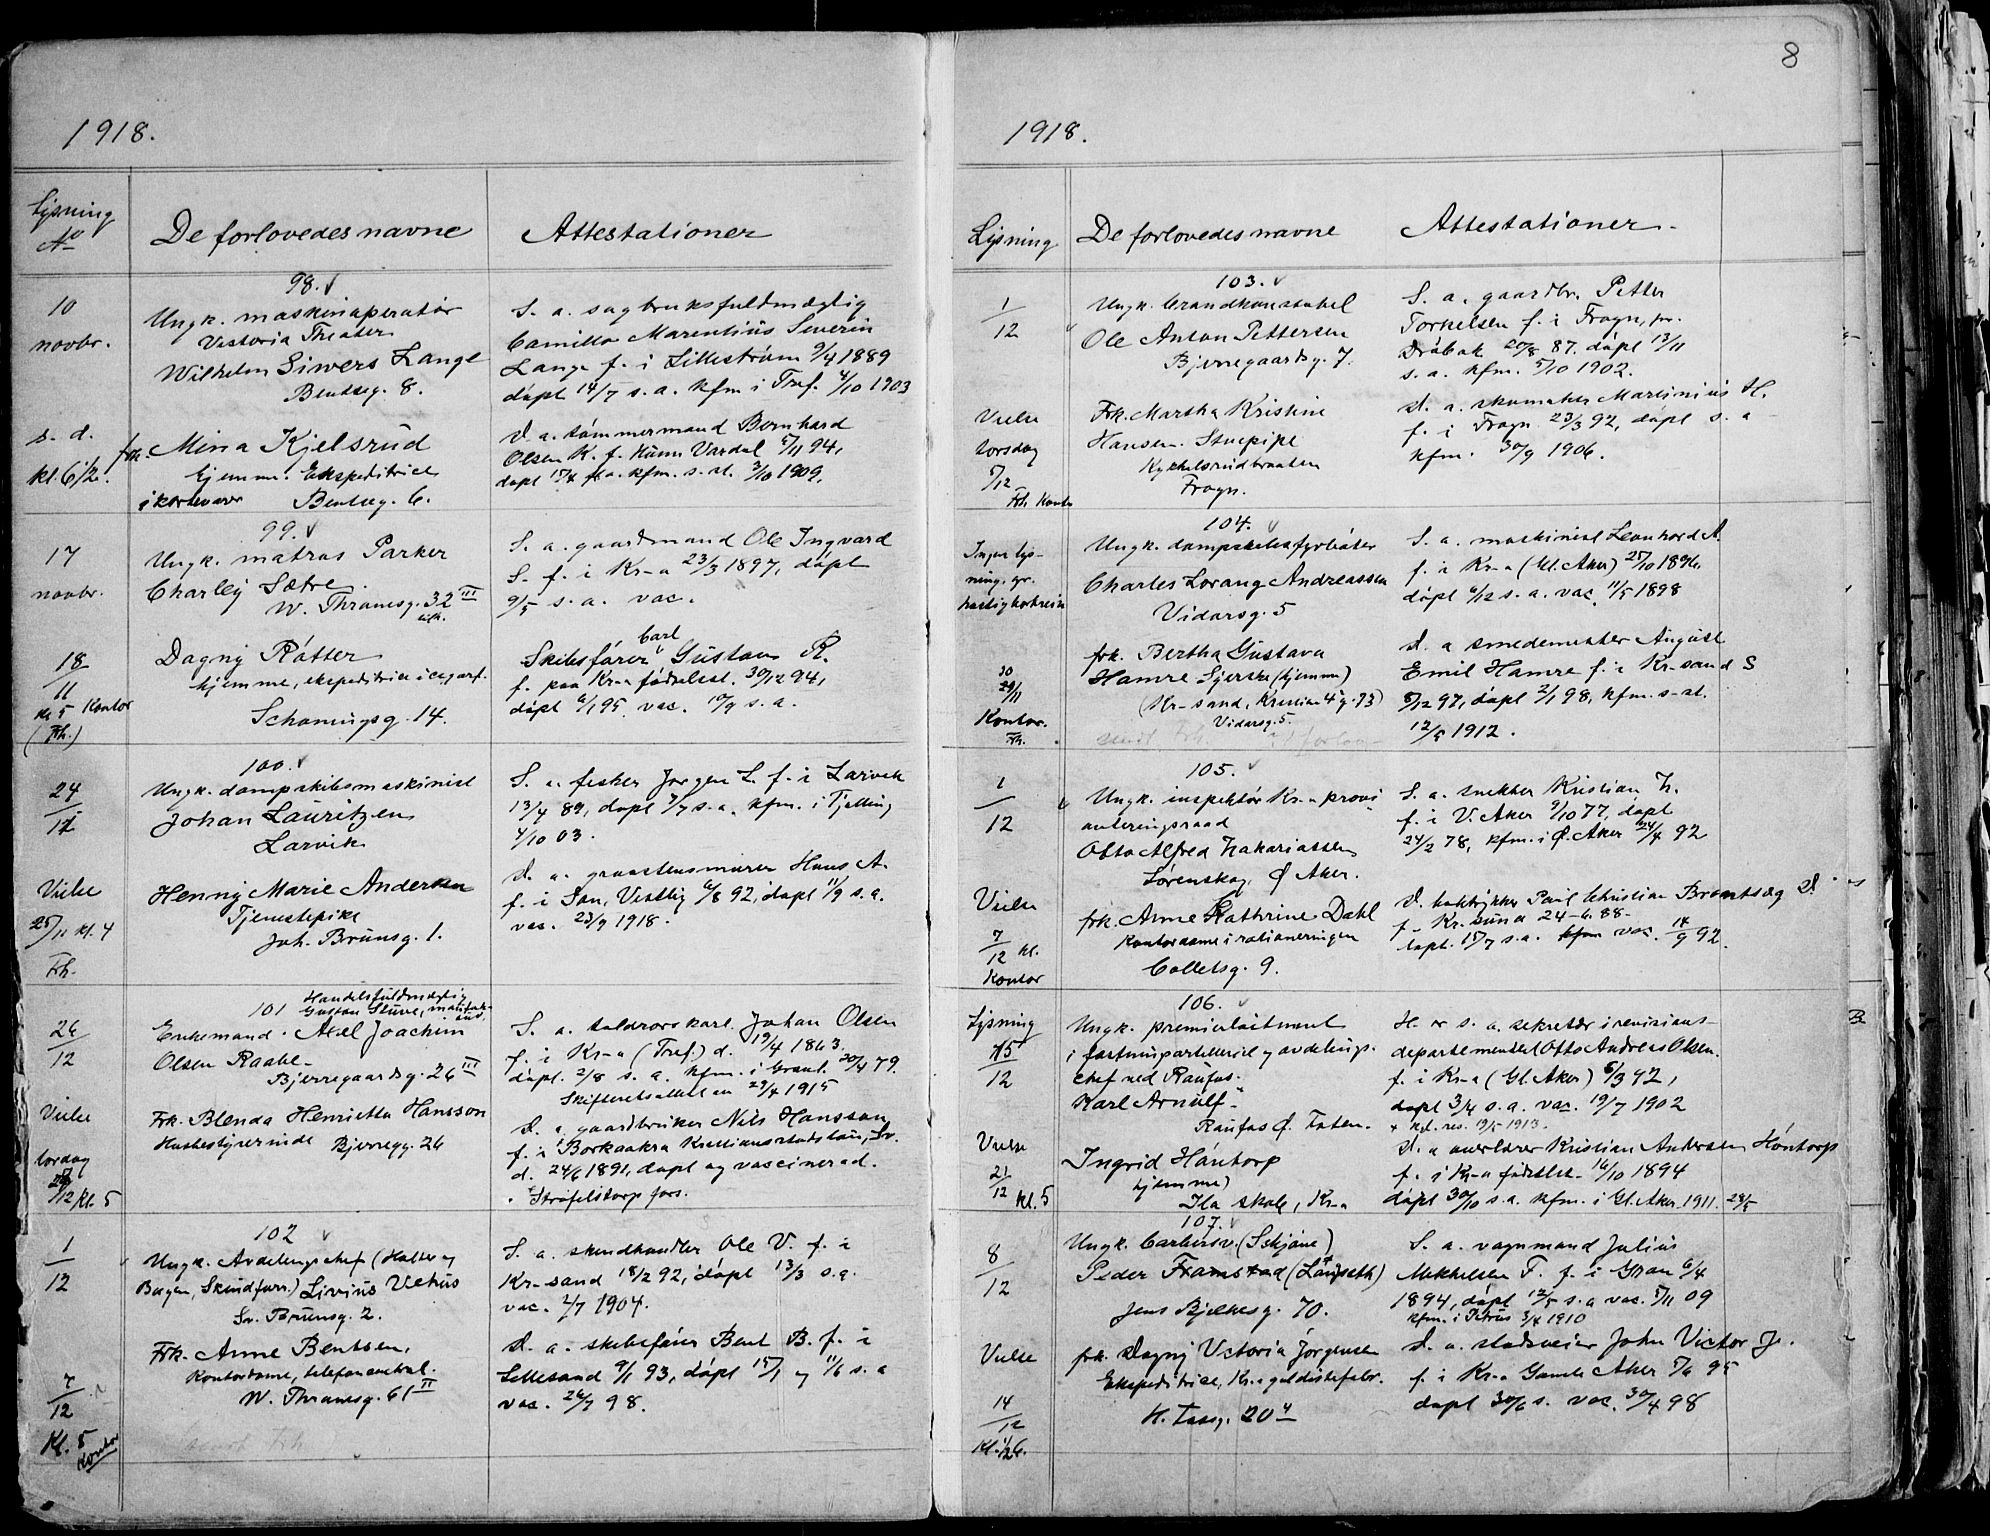 8
1918.
Lysning
No
De forlovedes navne
Attestationer
98.
10
novbr.
Ungk. maskinoperatør
Victoria Theater
Wilhelm Siwers Lange
Bentseg. 8.
S. a. sagbruksfuldmægtig
Camillo Marentius Severin
Lange f. i Lillestrøm 9/4 1889
døpt 14/7 s. a. kfm i Tref. 4/10 1903
s. d.
kl. 6 1/2.
frk. Mina Kjelsrud
hjemme. Ekspeditrice
Bentseg. 6.
D. a. tømmermand Bernhard
Olsen K. f. Vardal 5/11 94,
døpt 15/4 kfm. s. st. 3/10 1909.
99.
17
novbr.
Ungk. matros Parker
Charley Sætre
W. Thranesg. 32 III
S. a. gaardmand Ole Ingvard
S. f. i Kr-a 23/3 1897, døpt
9/5 s. a. vac.
18/11
kl 5 Kontor
(Frh.)
Dagny Røtter
hjemme, ekspeditrice i cigarf.
Schøningsg. 14.
Carl
Skibsfører Gustav R.
f. paa Kr-a fødselsst. 30/12 94,
døpt 6/1 95, vac. 10/9 s. a.
100.
24/11
Ungk. dampskibsmaskinist
Johan Lauritzen
Larvik
S. a. fisker Jørgen L. f. i Larvik
13/4 89, døpt 7/7 s. a. kfm. i Tjølling
4/10 03.
Vielse
25/11 kl. 4
Frh.
Henny Marie Andersen
Tjenestepike
Joh. Brunsg. 1.
D. a. graastensmurer Hans A.
f. i Son, Vestby 6/8 92, døpt 11/9 s. a.
vac. 23/9 1918.
101
Handelsfuldmægtig
Gustav Stuve,
26/12
Enkemand. Axel Joachim
Olsen Raabe
Bjerregaardsg. 26 III
S. a. toldrorskarl Johan Olsen
f. i Kr-a (Tref.) d. 19/4 1863.
døpt. 2/8 s. a. kfm. i Grønl. 20/4 79.
Skifteretsattest av 29/4 1915
Vielse
lørdag
/12 kl. 5
Frk. Blenda Henrietta Hansson
Husbestyrerinde Bjerregg. 26
D. a. gaardbruker Nils Hansson
f. i Borkaakra Kristiansstadslän, Sv.
d. 24/6 1891, døpt og vaccinerad.
Strøfelstorp fors.
102
1/12
Ungk. Avdelingschef (Halter og
Borgen, Skindforr.) Livius Vethus
Sv. Brunsg. 2.
S. a. skindhandler Ole V. f. i
Kr-sand 18/2 92, døpt 13/3 s. a.
vac. 2/7 1904.
7/12
Kl. 5
Kontor
Frk. Anne Bentsen,
Kontordame, telefoncentral.
W. Thranesg. 61 II
D. a. skibsfører Bent B. f. i
Lillesand 9/1 93, døpt 15/1 og 11/6 s. a
vac. 26/7 98.
1918.
Lysning
De forlovedes navne
Attestationer
103.
1/12
Ungk. brandkonstabel
Ole Anton Pettersen
Bjerregaardsg. 7.
S. a. gaardbr. Petter
Torkelsen f. i Frogn, pr.
Drøbak 20/8 87. døpt 13/11
s. a. kfm. 5/10 1902.
Vielse
torsdag
5/12
Frh. Kontor
Frk. Martha Kristine
Hansen. Stuepike
Kykkelsrudbraaten
Frogn.
D. a. skomaker Martinius H.
f. i Frogn 23/3 92, døpt s. a
kfm. 30/9 1906.
104.
Ingen lys-
ning. gr.
Ungk. dampskibsfyrbøter
Charles Lorang Andreassen
Vidarsg. 5
S. a. maskinist Leonhard A.
f. i Kr-a (Gl. Aker) 25/10 1896.
døpt 6/12 s. a. vac. 11/5 1898
30/11
Kontor.
Frh.
frk. Bertha Gustava
Hamre (hjemme)
(Kr-sand, Kristian 4 g. 73)
Vidarsg. 5.
D. a smedemester August
Emil Hamre f. i Kr-sand S
8/12 97, døpt 2/1 98, kfm. s. st.
12/5 1912.
105.
1/12
Ungk. inspektør Kr-a provi
anteringsraad
Otto Alfred Zakariassen
Lørenskog, Ø Aker.
S. a. snekker Kristian Z.
f. i V. Aker 9/10 77, døpt
24/2 78, kfm. i Ø. Aker 24/4 92
Vielse
7/12 kl.
Kontor
frk. Anne Kathrine Dahl
Kontordame i rationeringen
Colletsg. 9.
D. boktrykker Paul Christian Brantsæg D.
f. Kr. sund 24-6. 88.
døpt. 15/7 s. a. kfm vac. 14/9 92.
106.
Lysning
15/12
Ungk. premierløitnant
i fæstningsartilleriet og avdelings.
chef ved Raufos.
Karl Arnulf
Raufos Ø. Toten.
H. er s. a. sekretær i revisions-
departementet Otto Andreas Olsen.
f. i Kr-a (Gl. Aker) 6/3 92,
døpt 3/4 s. a. vac. 19/7 1902
+ kgl. res. 19/5 1913.
Vielse
21/12 Kl. 5
Ingrid Høntorp
hjemme)
Ila skole, Kr-a
D. a overlærer Kristian Andersen Høntorp
f. i Kr-a fødselsst. 16/10 1894
døpt 30/10 s. a. kfm. i Gl. Aker 1911. 28/5
107.
8/12
Ungk. (Sskjane)
Peder Framstad (Laupseth)
Jens Bjelkesg. 70.
S. a. vognmand Julius
Mikkelsen F. f. i Gran 6/4
1894, døpt 12/5 s. a vac. 5/11 09
kfm. i Petrus 3/4 1910
Vielse
14/12
Kl. 1/2 6.
frk. Dagny Victoria Jørgensen
Ekspeditrice, Kr.a guldlistefabr.
H. Tassg. 20
D. a. stadsveier John Victor J.
f. i Kr-a Gamle Aker 5/6 95
døpt 30/6 s. vac. 30/4 98